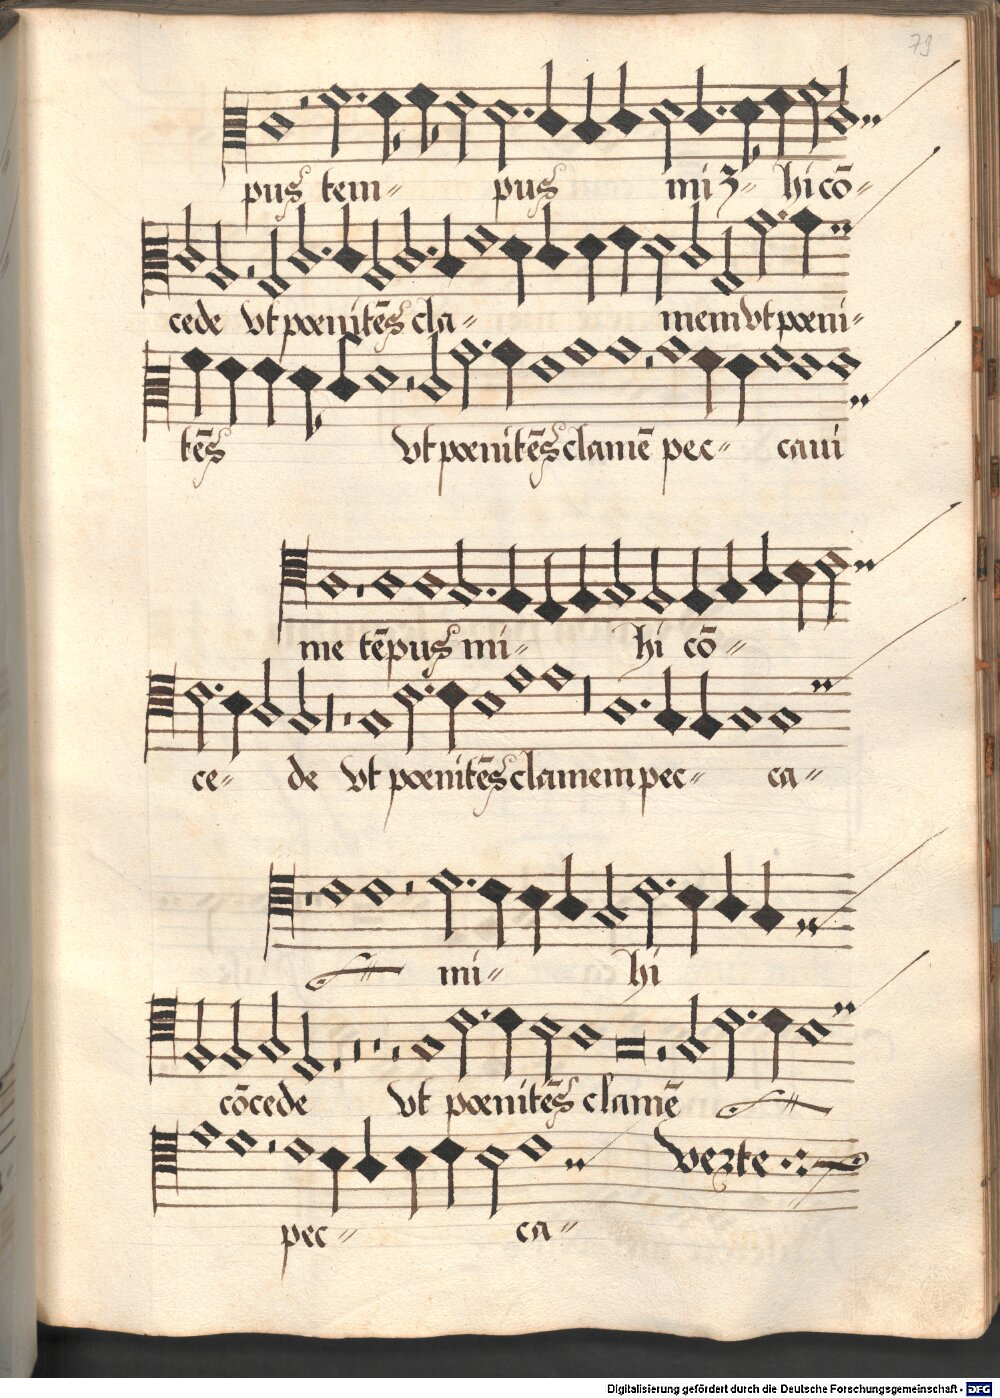 79
pus tem- pus mi- hi cō-
cede vt pœnitēs cla- mem vt pœni-
tēs vt pœnitēs clamē pec- caui
me tēpus mi- hi cō-
ce- de vt pœnitēs clamem pec- ca-
mi- hi
cōcede vt pœnitēs clamē
Verte
pec- ca-
Digitalisierung gefördert durch die Deutsche Forschungsgemeinschaft - DFG